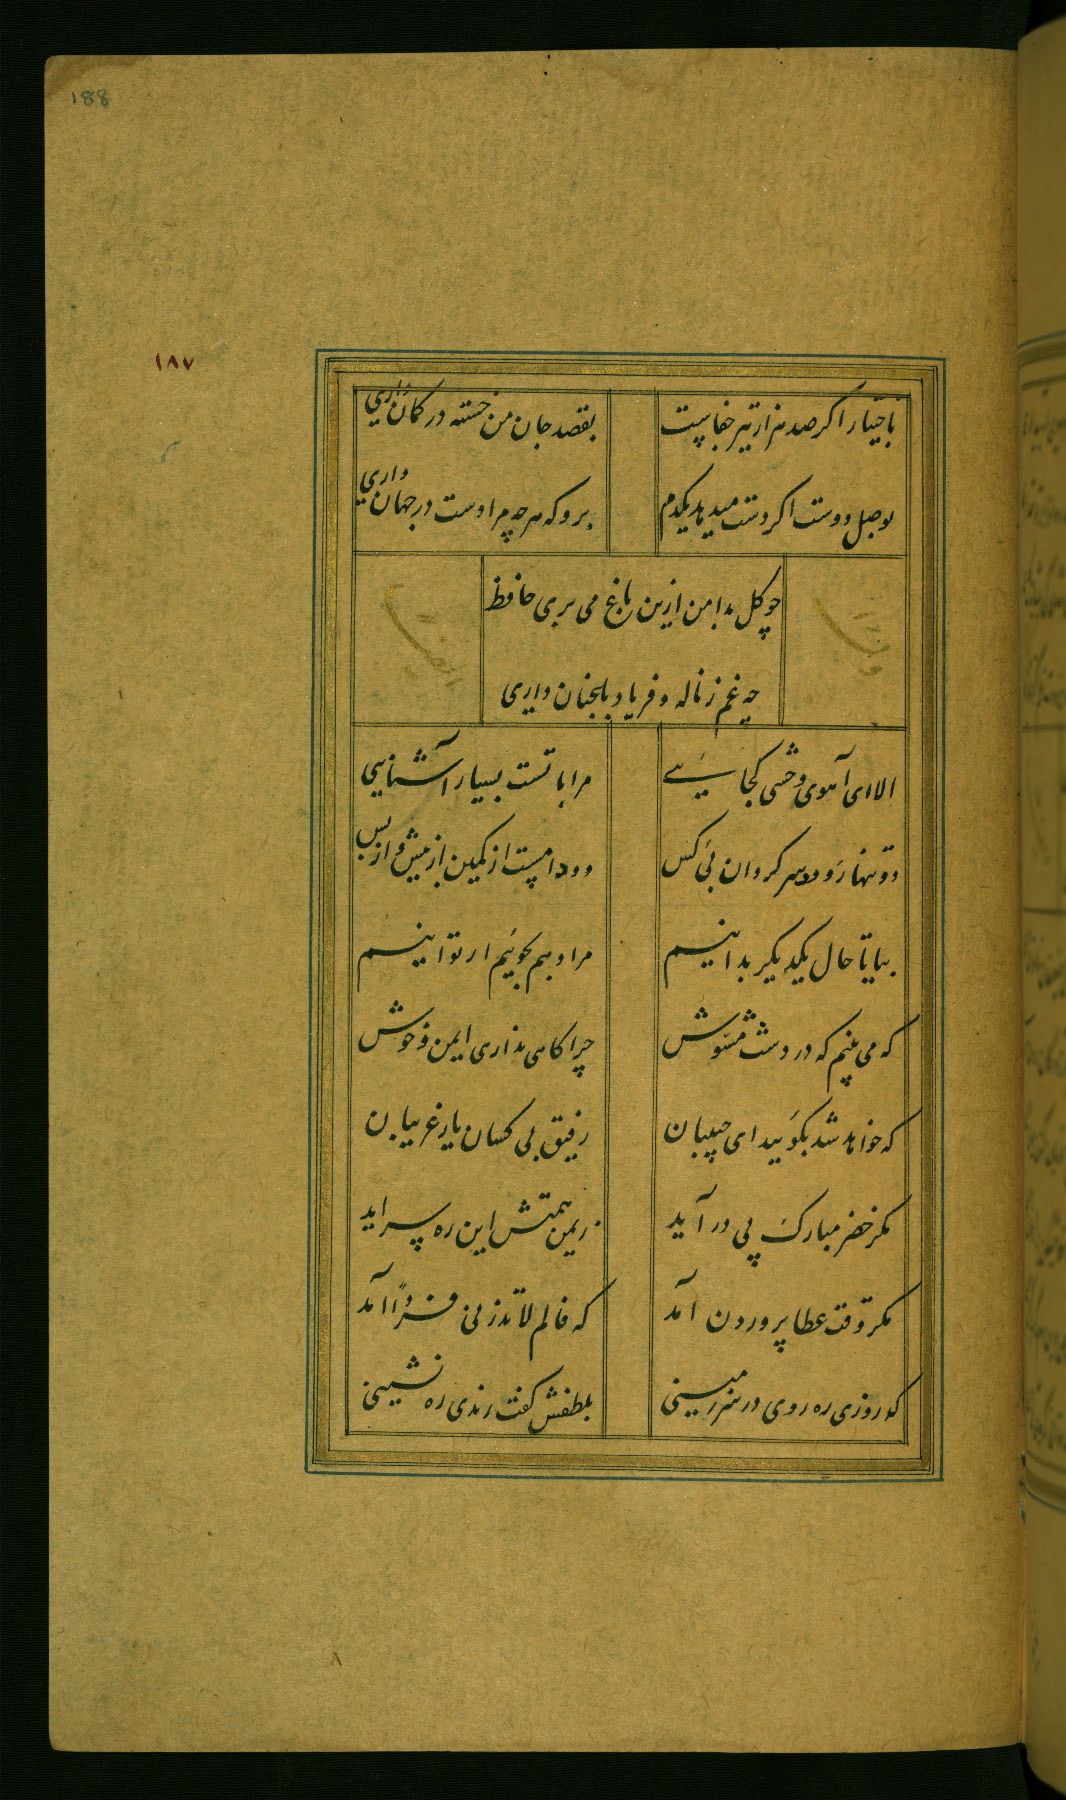 188
۱۸۷
باختیار اگر صد هزار تیر جفاست بقصد جان من خسته در کمان داری
بوصل دوست اگر دست میدهد یکدم برو که هرچه مراد است در جهان داری
چو گل بدامن ازین باغ می بری حافظ
چه غم ز ناله و فریاد باغبان داری
الا ای آهوی وحشی کجایی مرا با تست بسیار آشنایی
دو تنها رو دو سرگردان بی کس دو دامست از کمین از پیش و از پس
بیا تا حال یکدیگر بدانیم مراد هم بجوئیم ار توانیم
که می بینم که در دشت مشوش چراگاهی نداری ایمن و خوش
که خواهد شد بگویید ای حبیبان رفیق بی کسان یار غریبان
مگر خضر مبارک پی درآید ز یمن همتش این ره سراید
مگر وقت عطا پروردن آمد که فالم لا تذرنی فردا آمد
که روزی ره روی در سرزمینی بلطفش گفت رندی ره نشینی